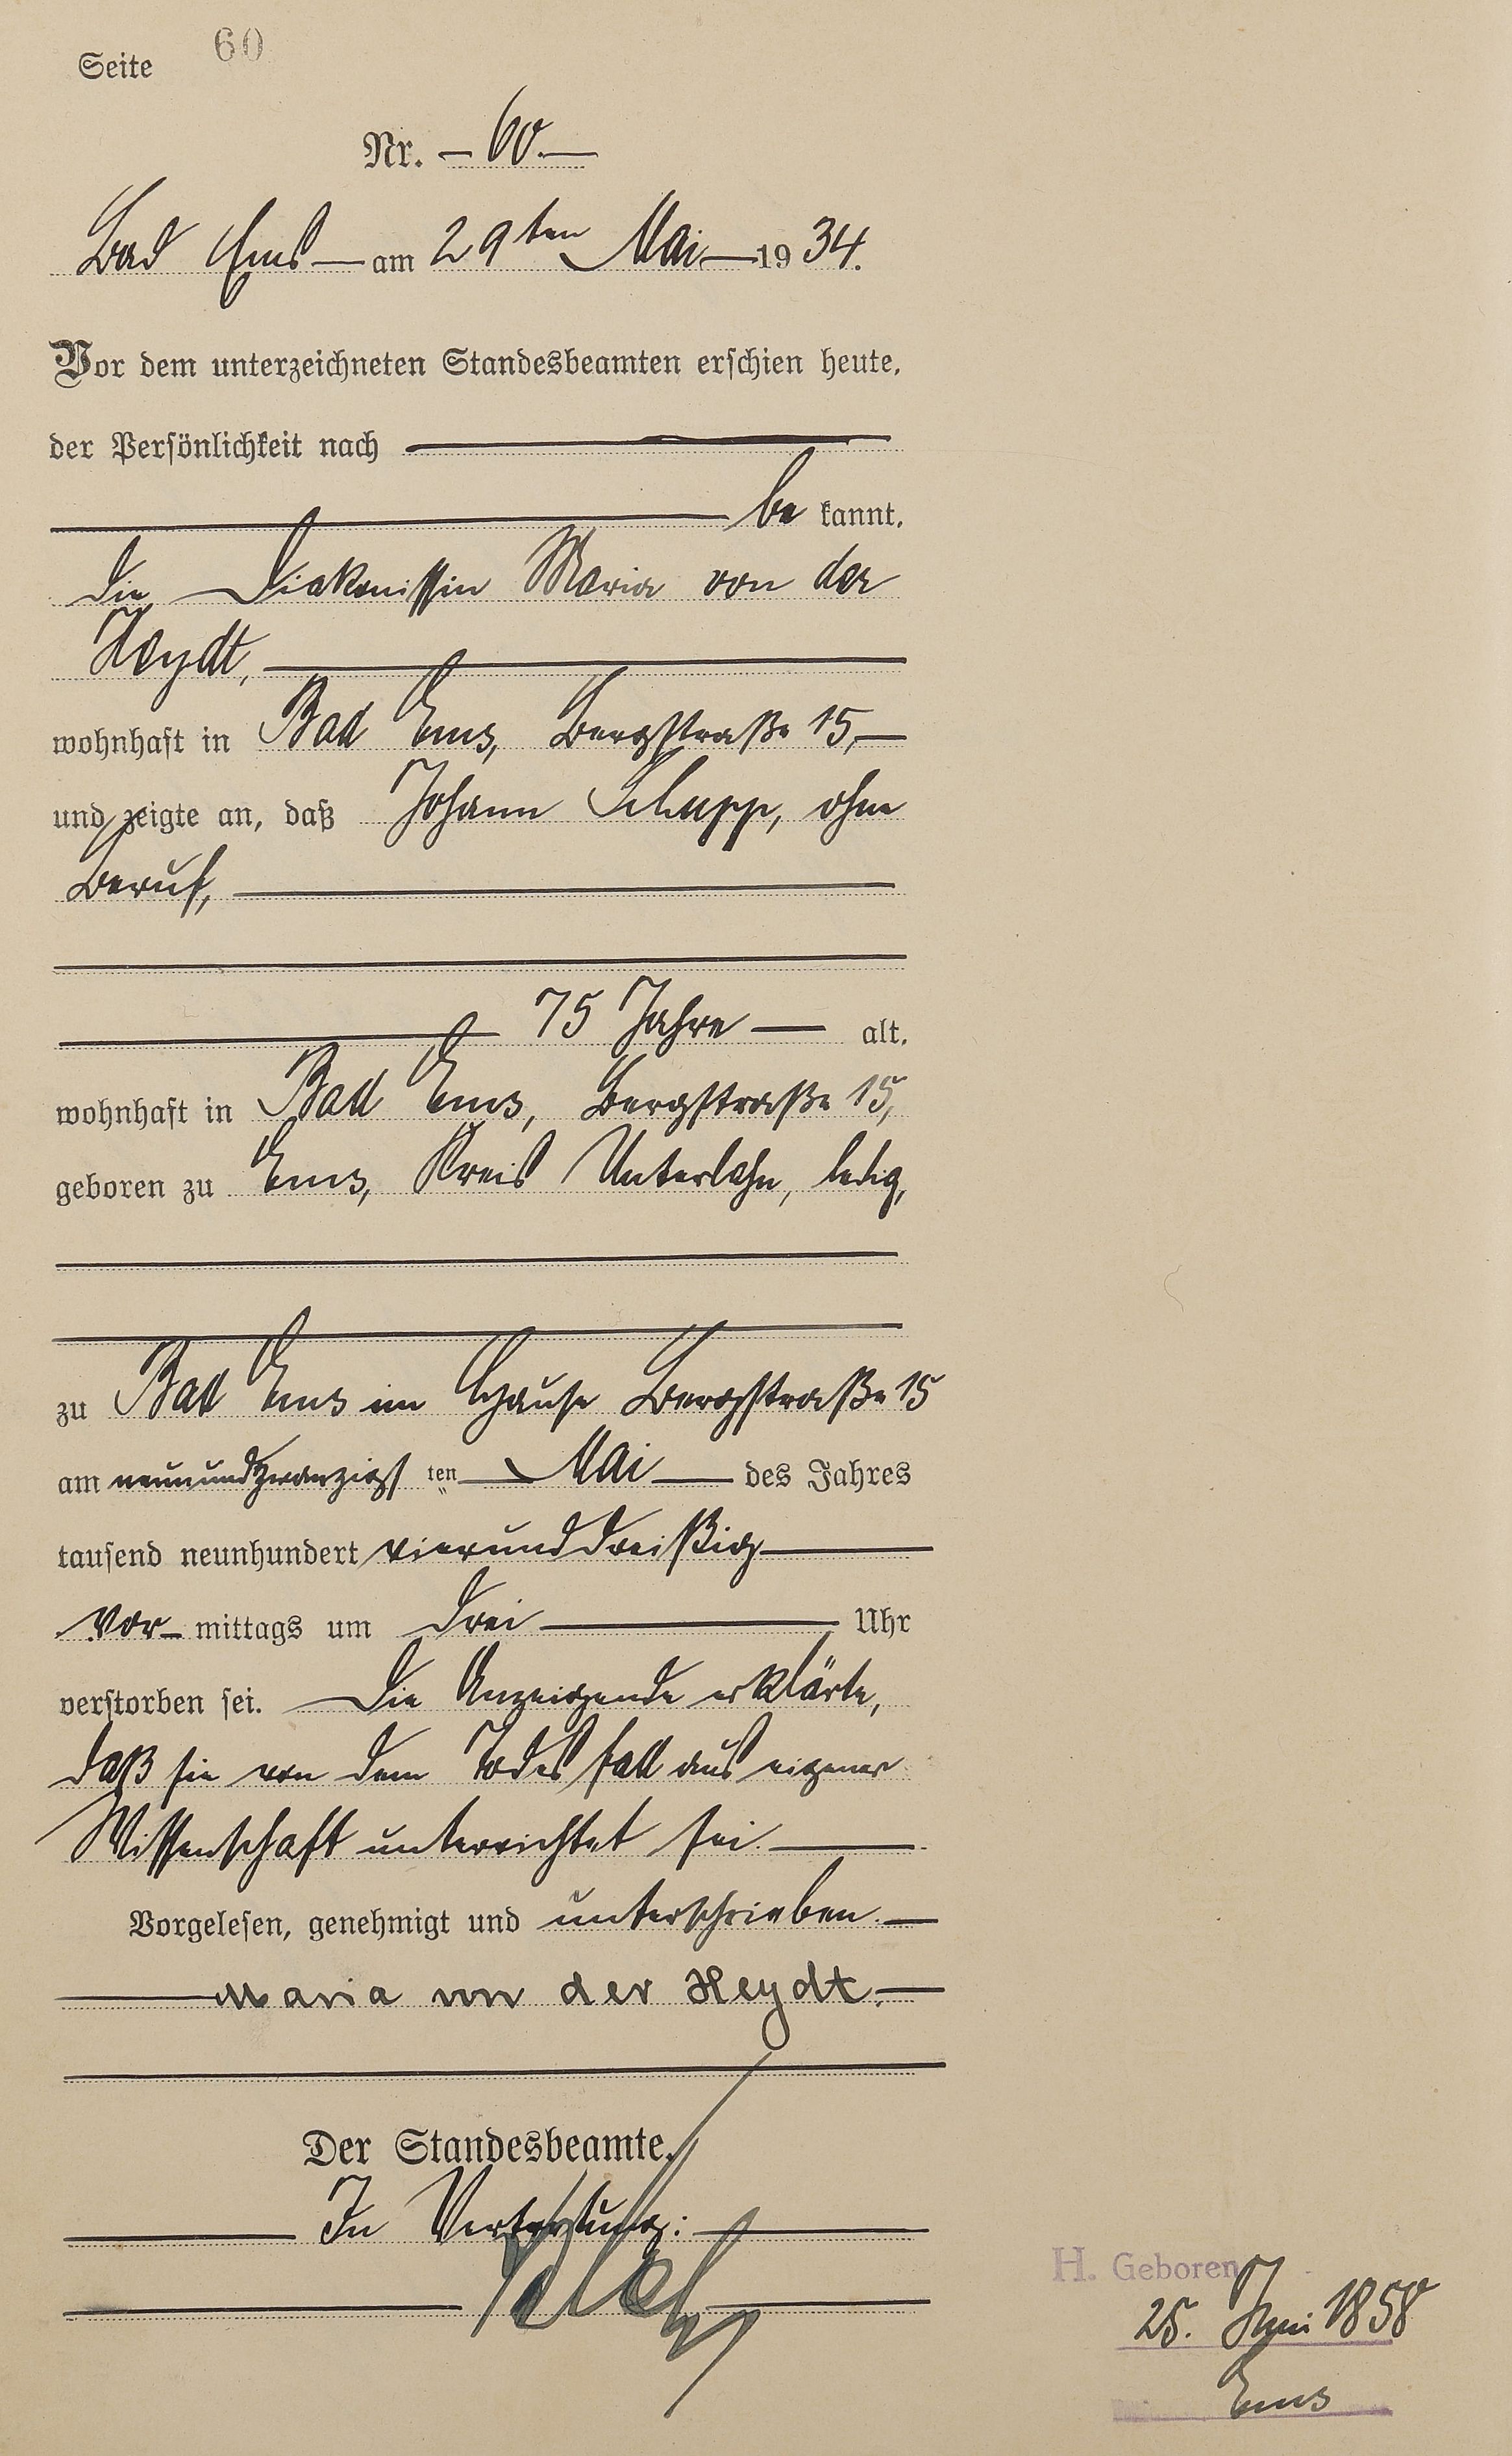 Seite 60
Nr. — 60. —
Bad Ems — am 29ten Mai — 1934.
Vor dem unterzeichneten Standesbeamten erschien heute,
der Persönlichkeit nach
be kannt,
die Diakonissin Maria von der
Heydt,
wohnhaft in Bad Ems, Bergstraße 15, —
und zeigte an, daß Johann Schupp, ohne
Beruf,
75 Jahre — alt,
wohnhaft in Bad Ems, Bergstraße 15,
geboren zu Ems, Kreis Unterlahn, ledig,
zu Bad Ems im Hause Bergstraße 15
am neunundzwanzigst ten Mai — des Jahres
tausend neunhundert vierunddreißig —
vor- mittags um drei — Uhr
verstorben sei. Die Anzeigende erklärte,
daß sie von dem Todesfall aus eigener
Wissenschaft unterrichtet sei. —
Vorgelesen, genehmigt und unterschrieben. —
Maria von der Heydt. —
Der Standesbeamte.
In Vertretung:
H. Geboren
25. 1858
Ems